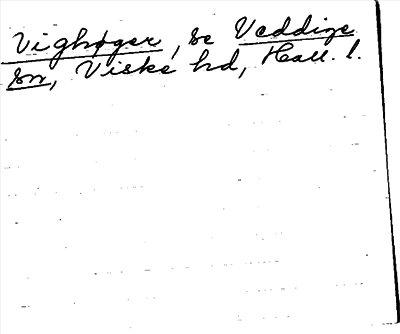 Vighøger, se Veddige
sn, Viske hd, Hall. l.